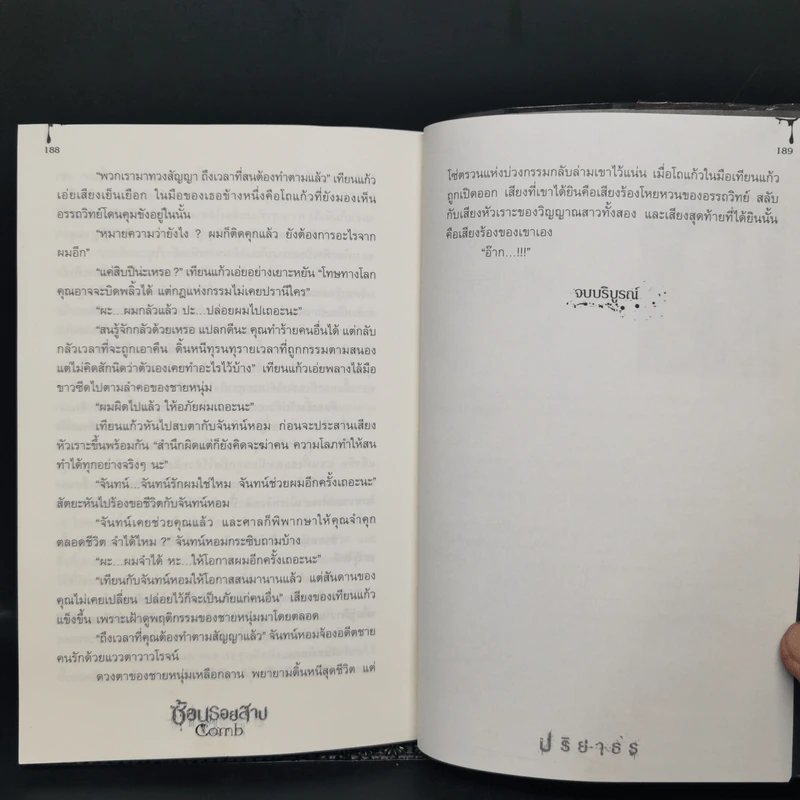 188
“พวกเรามาทวงสัญญา ถึงเวลาที่สนต้องทำตามแล้ว” เทียนแก้ว
เอ่ยเสียงเย็นเยือก ในมือของเธอข้างหนึ่งคือโถแก้วที่ยังมองเห็น
อรรถวิทย์โดนคุมขังอยู่ในนั้น
“หมายความว่ายังไง ? ผมก็ติดคุกแล้ว ยังต้องการอะไรจาก
ผมอีก”
“แค่สิบปีน่ะเหรอ ?” เทียนแก้วเอ่ยอย่างเยาะหยัน “โทษทางโลก
คุณอาจจะบิดพลิ้วได้ แต่กฎแห่งกรรมไม่เคยปรานีใคร”
“ผะ...ผมกลัวแล้ว ปะ...ปล่อยผมไปเถอะนะ”
“สนรู้จักกลัวด้วยเหรอ แปลกดีนะ คุณทำร้ายคนอื่นได้ แต่กลับ
กลัวเวลาที่จะถูกเอาคืน ดิ้นหนีทุรนทุรายเวลาที่ถูกกรรมตามสนอง
แต่ไม่คิดสักนิดว่าตัวเองเคยทำอะไรไว้บ้าง” เทียนแก้วเอ่ยพลางไล้มือ
ขาวซีดไปตามลำคอของชายหนุ่ม
“ผมผิดไปแล้ว ให้อภัยผมเถอะนะ”
เทียนแก้วหันไปสบตากับจันทน์หอม ก่อนจะประสานเสียง
หัวเราะขึ้นพร้อมกัน “สำนึกผิดแต่ก็ยังคิดจะฆ่าคน ความโลภทำให้สน
ทำได้ทุกอย่างจริงๆ นะ”
“จันทน์...จันทน์รักผมใช่ไหม จันทน์ช่วยผมอีกครั้งเถอะนะ”
สัตยะหันไปร้องขอชีวิตกับจันทน์หอม
“จันทน์เคยช่วยคุณแล้ว และศาลก็พิพากษาให้คุณจำคุก
ตลอดชีวิต จำได้ไหม ?” จันทน์หอมกระซิบถามบ้าง
“ผะ...ผมจำได้ หะ...ให้โอกาสผมอีกครั้งเถอะนะ”
“เทียนกับจันทน์หอมให้โอกาสสนมานานแล้ว แต่สันดานของ
คุณไม่เคยเปลี่ยน ปล่อยไว้ก็จะเป็นภัยแก่คนอื่น” เสียงของเทียนแก้ว
แข็งขึ้น เพราะเฝ้าดูพฤติกรรมของชายหนุ่มมาโดยตลอด
“ถึงเวลาที่คุณต้องทำตามสัญญาแล้ว” จันทน์หอมจ้องอดีตชาย
คนรักด้วยแววตาวาวโรจน์
ดวงตาของชายหนุ่มเหลือกลาน พยายามดิ้นหนีสุดชีวิต แต่
ซ้อนรอยสาป
Comb
189
โซ่ตรวนแห่งบ่วงกรรมกลับล่ามเขาไว้แน่น เมื่อโถแก้วในมือเทียนแก้ว
ถูกเปิดออก เสียงที่เขาได้ยินคือเสียงร้องโหยหวนของอรรถวิทย์ สลับ
กับเสียงหัวเราะของวิญญาณสาวทั้งสอง และเสียงสุดท้ายที่ได้ยินนั้น
คือเสียงร้องของเขาเอง
“อ๊าก...!!!”
จบบริบูรณ์
ปริยาธร